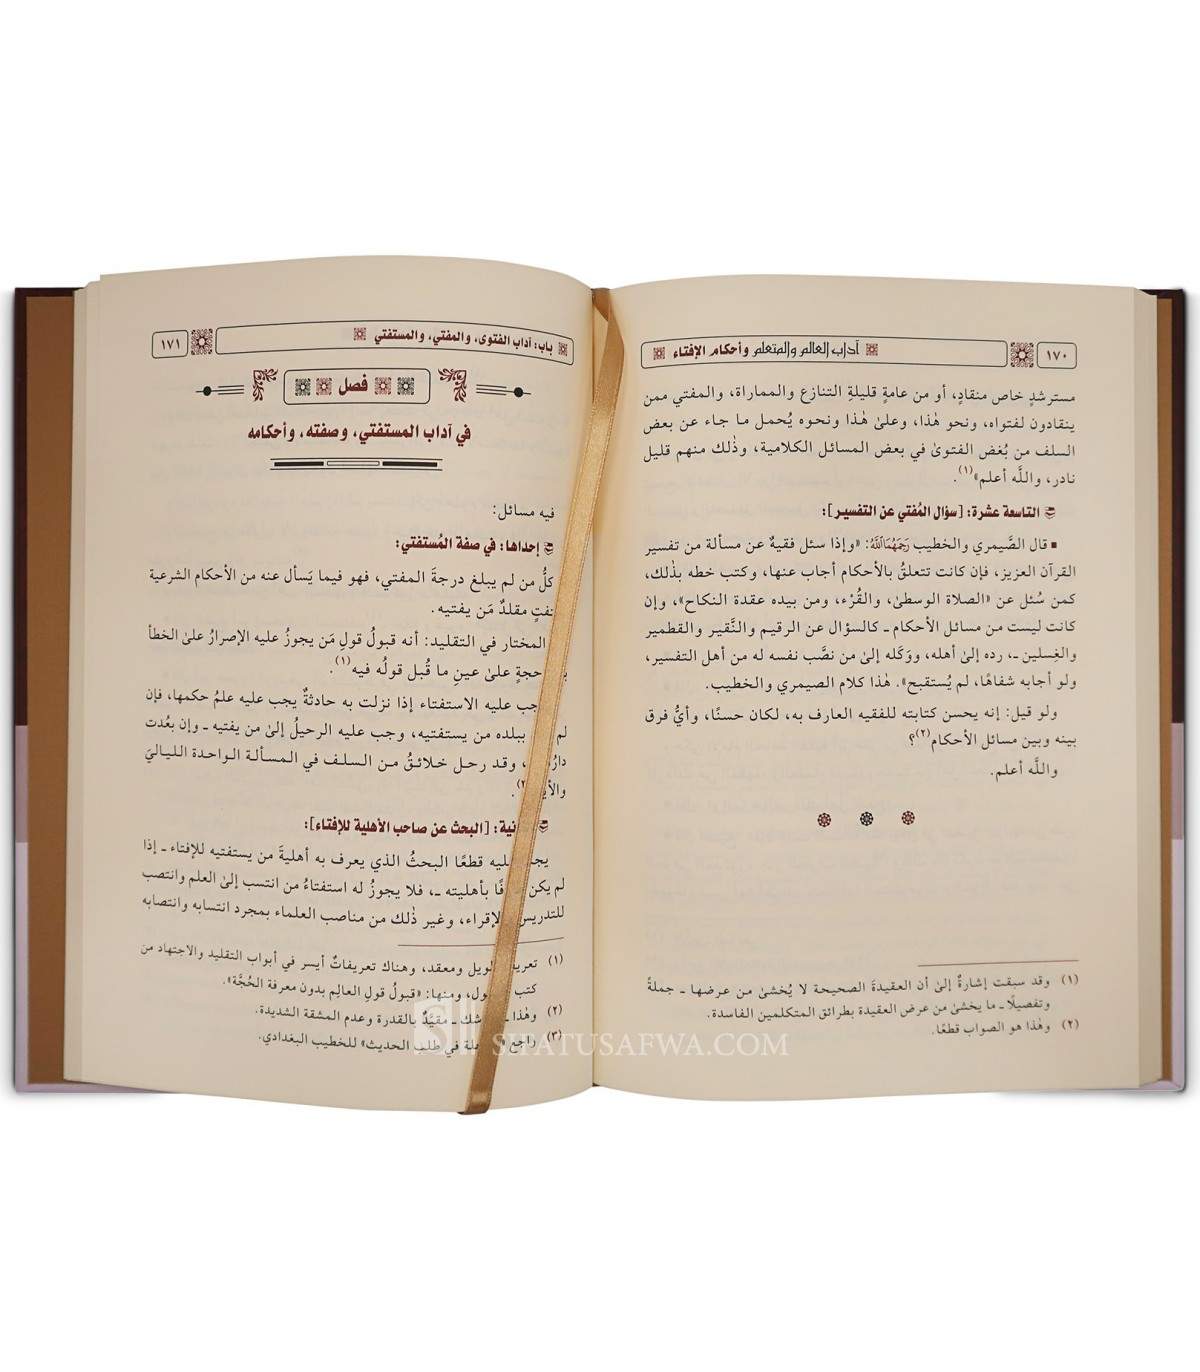 ١٧٠
آداب العالم والمتعلم وأحكام الإفتاء
مسترشدٍ خاص منقادٍ، أو من عامةٍ قليلةِ التنازع والمماراة، والمفتي ممن
ينقادون لفتواه، ونحو هٰذا، وعلىٰ هٰذا ونحوه يُحمل ما جاء عن بعض
السلف من بُغض الفتوىٰ في بعض المسائل الكلامية، وذٰلك منهم قليل
نادر، واللَّه أعلم»(١).
التاسعة عشرة: [سؤال المُفتي عن التفسير]:
▪ قال الصَّيمري والخطيب رَحِمَهُمَااللَّهُ: «وإذا سئل فقيهٌ عن مسألة من تفسير
القرآن العزيز، فإن كانت تتعلقُ بالأحكام أجاب عنها، وكتب خطه بذٰلك،
كمن سُئل عن «الصلاة الوسطىٰ، والقُرْء، ومن بيده عقدة النكاح»، وإن
كانت ليست من مسائل الأحكام ـ كالسؤال عن الرقيم والنَّقير والقطمير
والغِسلين ـ، رده إلىٰ أهله، ووَكَله إلىٰ من نصَّب نفسه له من أهل التفسير،
ولو أجابه شفاهًا، لم يُستقبح». هٰذا كلام الصيمري والخطيب.
ولو قيل: إنه يحسن كتابته للفقيه العارف به، لكان حسنًا، وأيُّ فرق
بينه وبين مسائل الأحكام(٢)؟
واللَّه أعلم.
(١) وقد سبقت إشارةٌ إلىٰ أن العقيدةَ الصحيحة لا يُخشىٰ من عرضها ـ جملةً
وتفصيلًا ـ ما يخشىٰ من عرض العقيدة بطرائق المتكلمين الفاسدة.
(٢) وهٰذا هو الصواب قطعًا.
باب: آداب الفتوى، والمفتي، والمستفتي
١٧١
فصل
في آداب المستفتي، وصفته، وأحكامه
فيه مسائل:
إحداها: في صفة المُستفتي:
كلُّ من لم يبلغ درجةَ المفتي، فهو فيما يَسأل عنه من الأحكام الشرعية
مقلدٌ مَن يفتيه.
المختار في التقليد: أنه قبولُ قولِ مَن يجوزُ عليه الإصرارُ علىٰ الخطأ
حجةٍ علىٰ عينِ ما قُبل قولُه فيه(١).
عليه الاستفتاء إذا نزلت به حادثةٌ يجب عليه علمُ حكمها، فإن
لم ببلده من يستفتيه، وجب عليه الرحيلُ إلىٰ من يفتيه ـ وإن بعُدت
وقد رحل خلائقُ من السلف في المسألة الواحدة الليالیَ
[البحث عن صاحب الأهلية للإفتاء]:
قطعًا البحثُ الذي يعرف به أهليةَ من يستفتيه للإفتاء ـ إذا
لم يكن بأهليته ـ، فلا يجوزُ له استفتاءُ من انتسب إلىٰ العلم وانتصب
للتدريس وغير ذٰلك من مناصب العلماء بمجرد انتسابه وانتصابه
(١) ومعقد، وهناك تعريفاتٌ أيسر في أبواب التقليد والاجتهاد من
كتب ومنها: «قبولُ قولِ العالِم بدون معرفة الحُجَّة».
(٢) وهٰذا ـ شك ـ مقيّدٌ بالقدرة وعدم المشقة الشديدة.
(٣) راجع في طلب الحديث» للخطيب البغدادي.
SIFATUSAFWA.COM